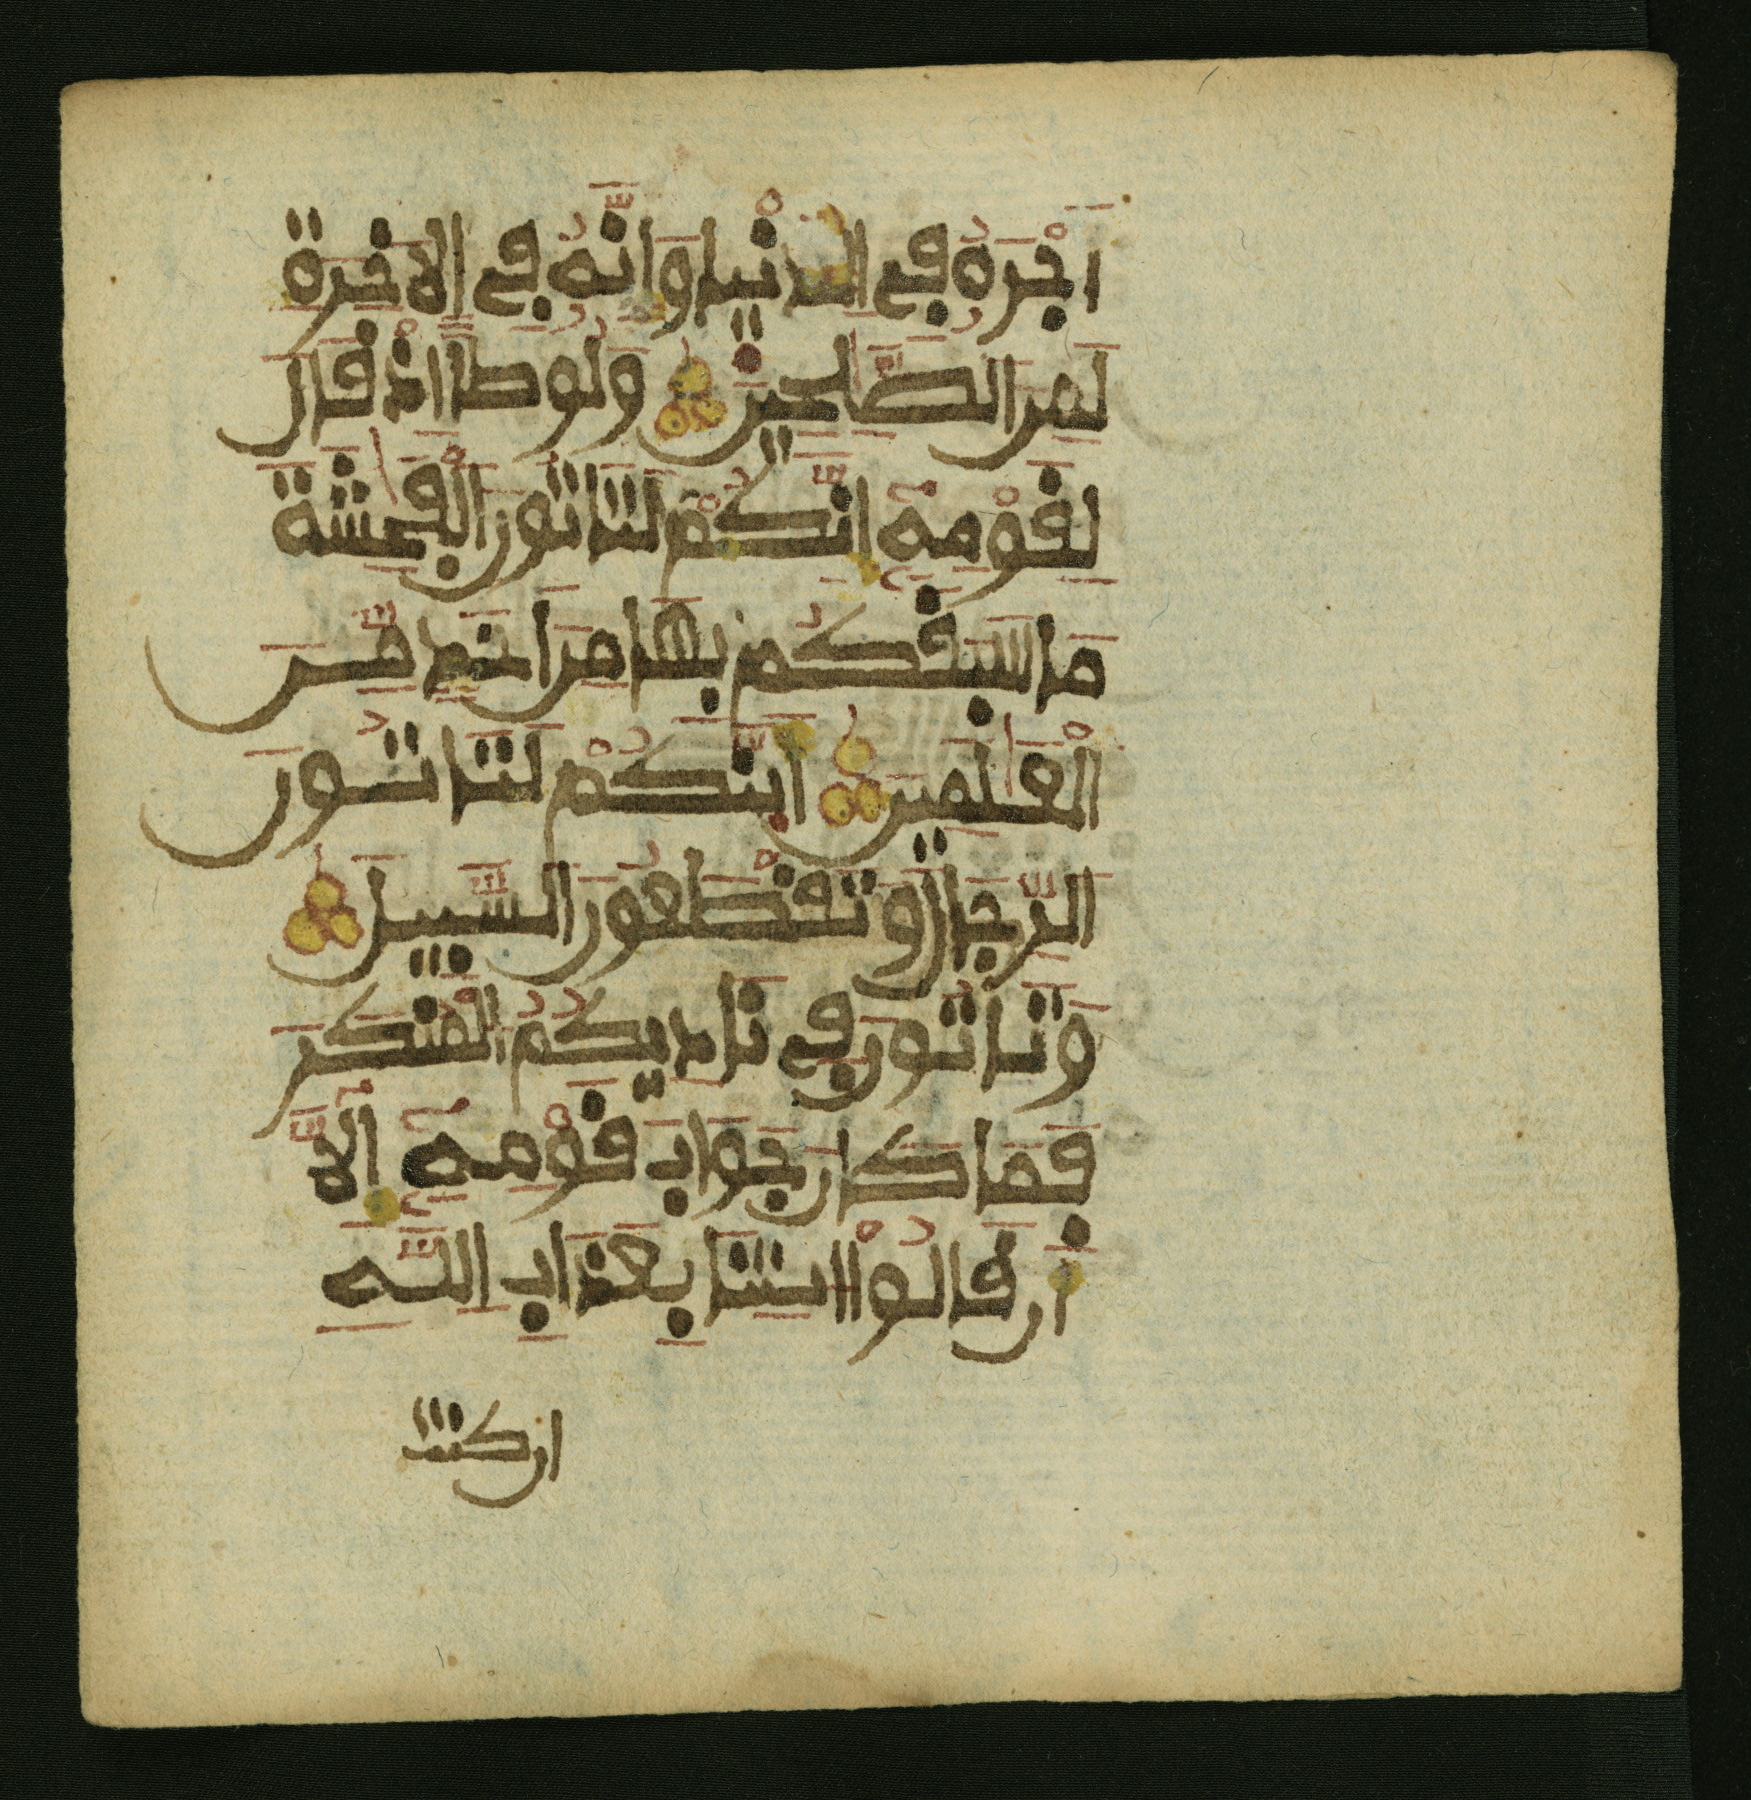 أَجْرَهُ فِي الدُّنْيَا وَإِنَّهُ فِي الْآخِرَةِ
لَمِنَ الصَّٰلِحِينَ وَلُوطًا إِذْ قَالَ
لِقَوْمِهِ إِنَّكُمْ لَتَأْتُونَ الْفَٰحِشَةَ
مَا سَبَقَكُم بِهَا مِنْ أَحَدٍ مِّنَ
الْعَٰلَمِينَ أَئِنَّكُمْ لَتَأْتُونَ
الرِّجَالَ وَتَقْطَعُونَ السَّبِيلَ
وَتَأْتُونَ فِي نَادِيكُمُ الْمُنكَرَ
فَمَا كَانَ جَوَابَ قَوْمِهِ إِلَّا
أَن قَالُوا ائْتِنَا بِعَذَابِ اللَّهِ
ان كنت